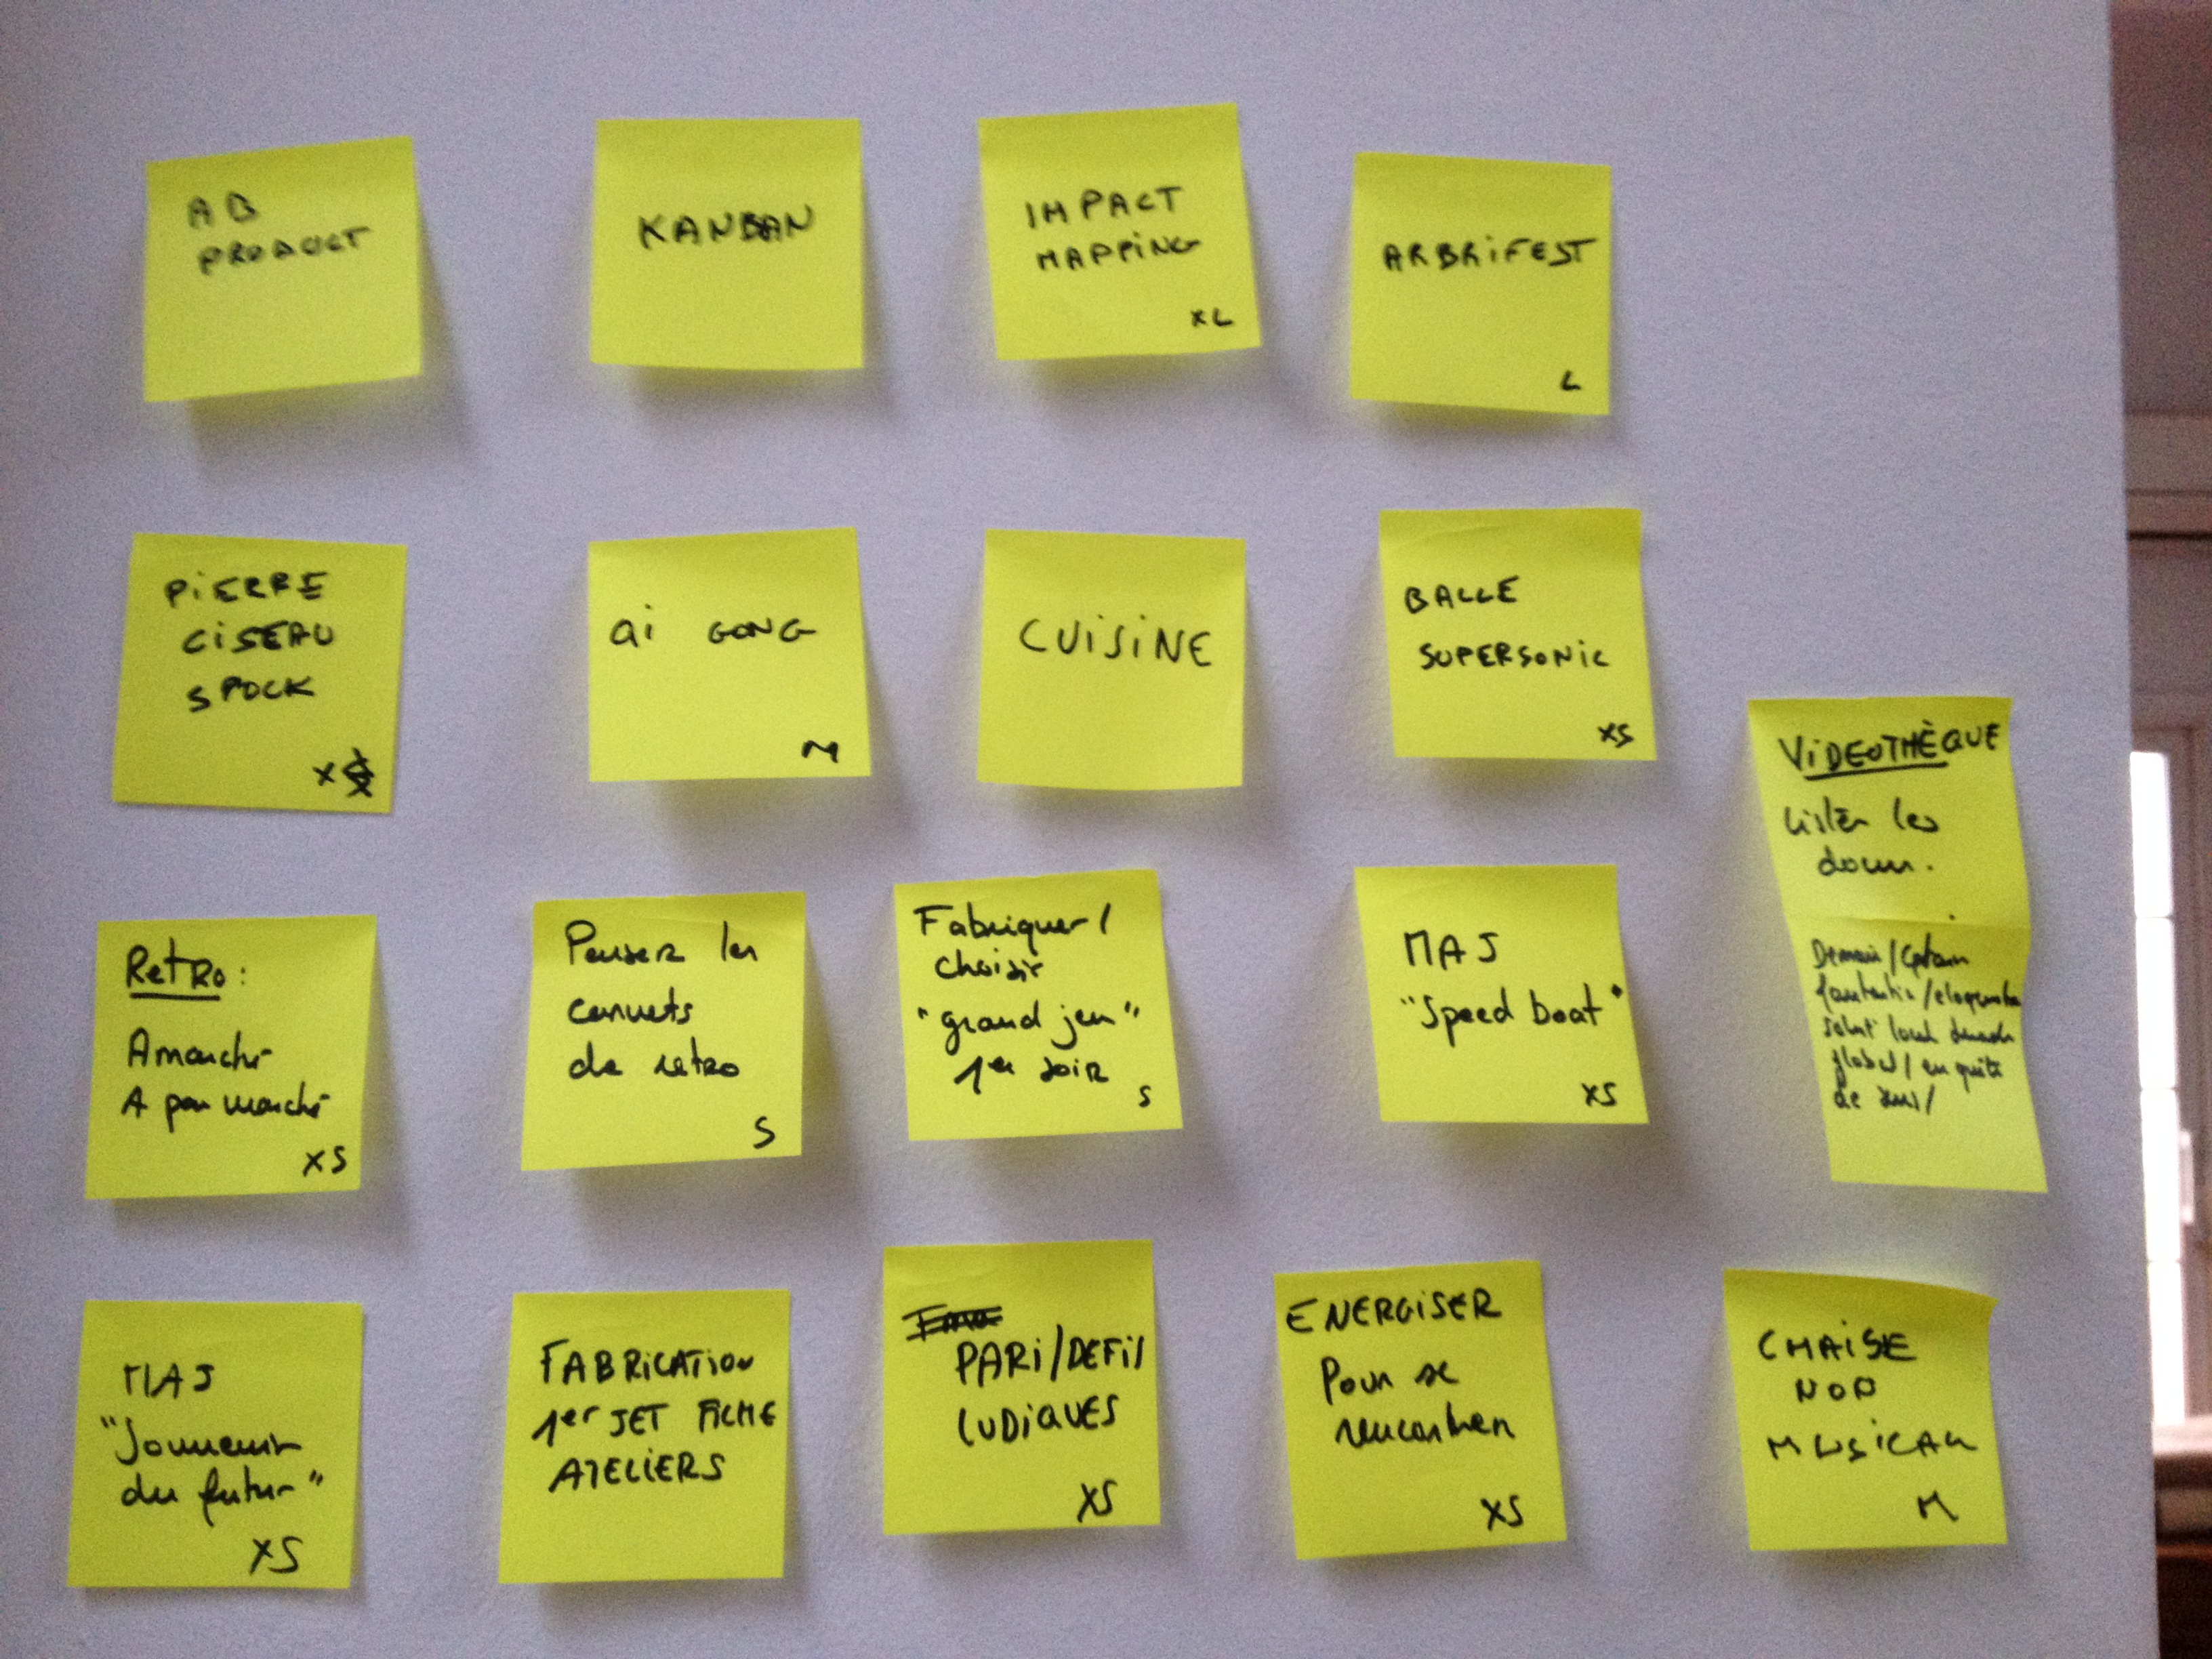 AB
PRODUCT
KANBAN
IMPACT
MAPPING
XL
ARBRIFEST
L
PIERRE
CISEAU
SPOCK
X
Qi GONG
M
CUISINE
BALLE
SUPERSONIC
XS
VIDEOTHÈQUE
Lister les
docum.
Demain/Captain
fantastic/
/en quête
de sens/
RetRo:
A marché
A pas marché
XS
Penser les
carnets
de retro
S
Fabriquer/
choisir
"grand jeu"
1er soir
S
MAJ
"Speed boat"
XS
MAJ
"Souvenir
du futur"
XS
FABRICATION
1er JET FICHE
ATELIERS
PARI/DEFIS
LUDIQUES
XS
ENERGISER
Pour se
rencontrer
XS
CHAISE
NOD
MUSICAL
M